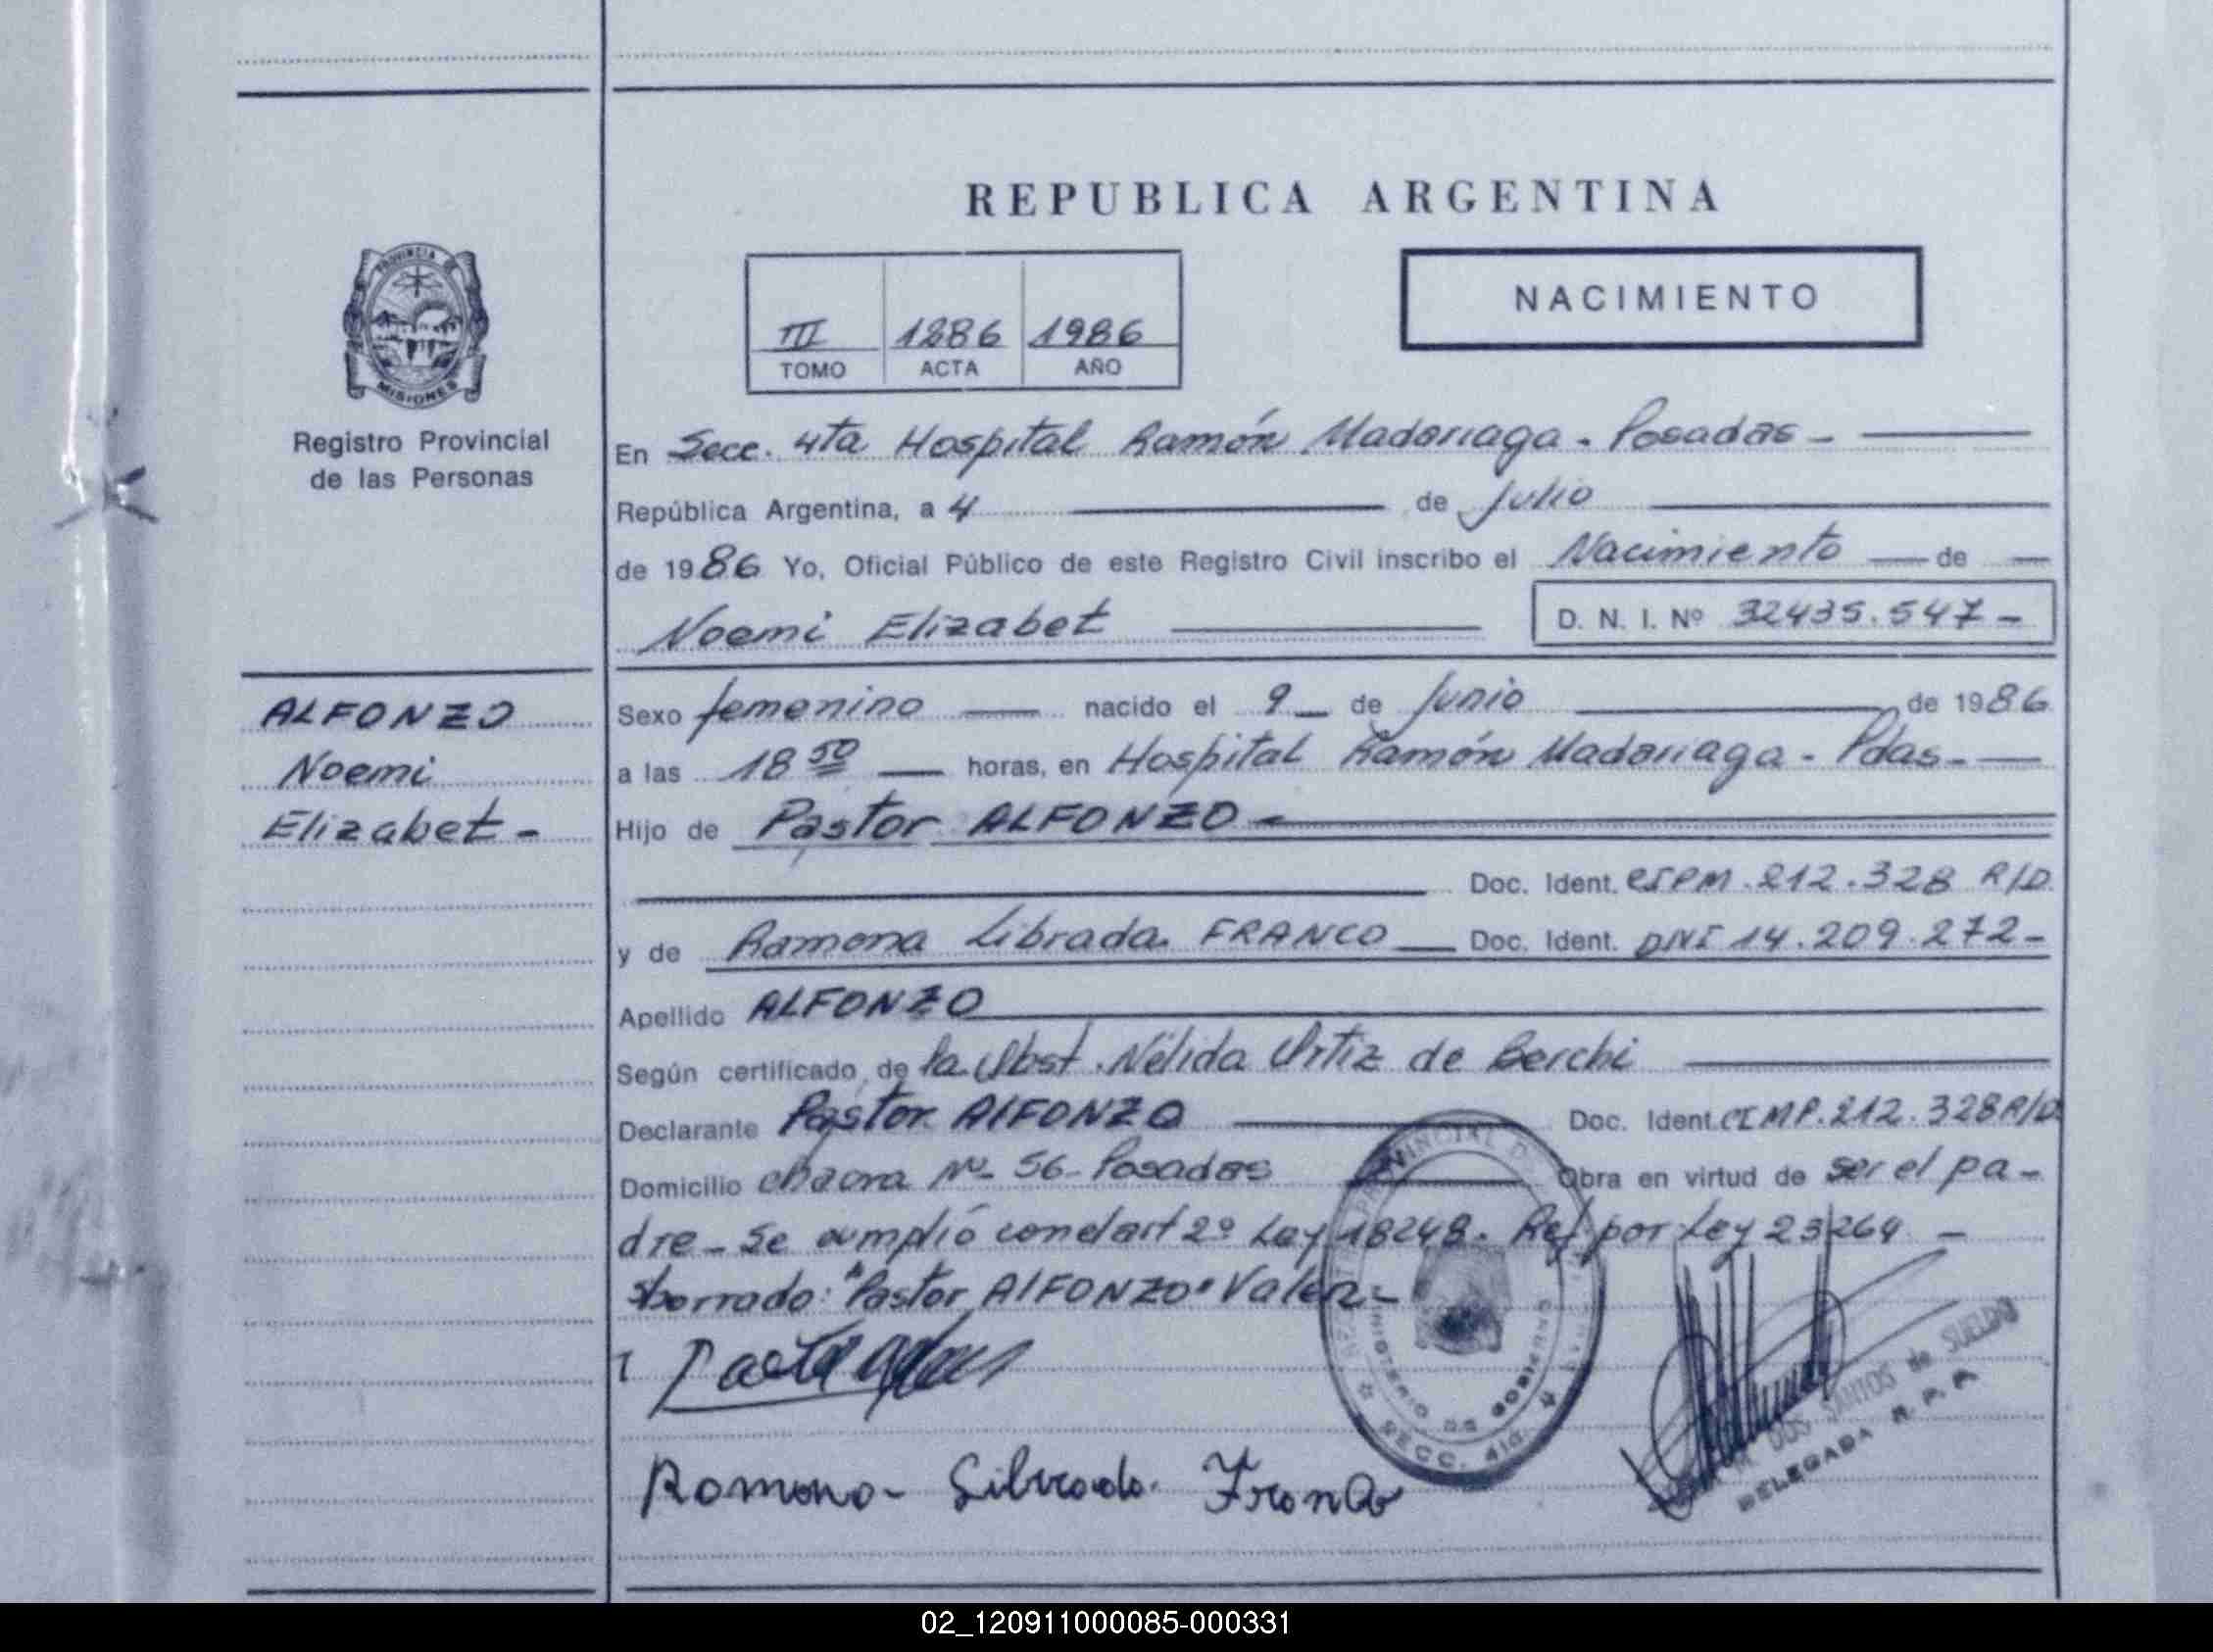 REPUBLICA ARGENTINA
PROVINCIA DE
MISIONES
Registro Provincial
de las Personas
III 1286 1986
TOMO ACTA AÑO
NACIMIENTO
En Secc. 4ta Hospital Ramón Madariaga - Posadas -
República Argentina, a 4 de Julio
de 1986 Yo, Oficial Público de este Registro Civil inscribo el Nacimiento de
Noemi Elizabet D. N. I. Nº 32435.547-
ALFONZO
Noemi
Elizabet -
Sexo femenino nacido el 9 de Junio de 1986
a las 18 50 horas, en Hospital Ramón Madariaga - Pdas.-
Hijo de Pastor ALFONZO -
Doc. Ident. CIPM. 212.328 R/D
y de Ramona Librada FRANCO Doc. Ident. DNI 14.209.272-
Apellido ALFONZO
Según certificado de la Obst. Nélida Ortiz de Berchi
Declarante Pastor AlFONZO Doc. Ident. CIMP. 212.328 R/D
Domicilio chacra Nº 56- Posadas Obra en virtud de ser el pa-
dre - Se cumplió con el art 2º Ley 18248. Ref por Ley 23264 -
borrado: "Pastor AlFONZO" Vale.-
Ramona Librada Franco
MINISTERIO DE GOBIERNO
SECC. 4ta.
DOS SANTOS de SUELDO
DELEGADA R. P. P.
02_120911000085-000331